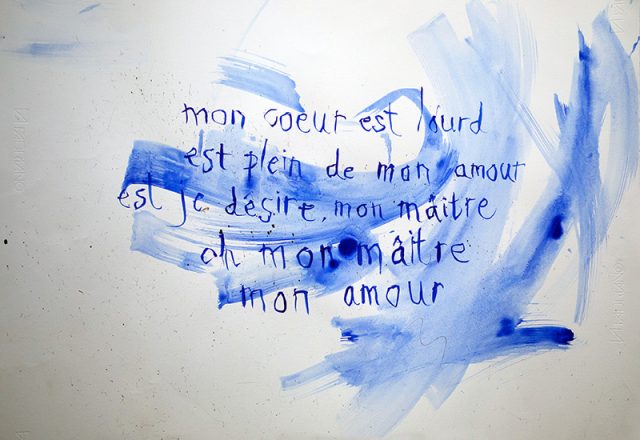 mon coeur est lourd
est plein de mon amour
est je desire, mon mâitre
ah mon mâitre
mon amour